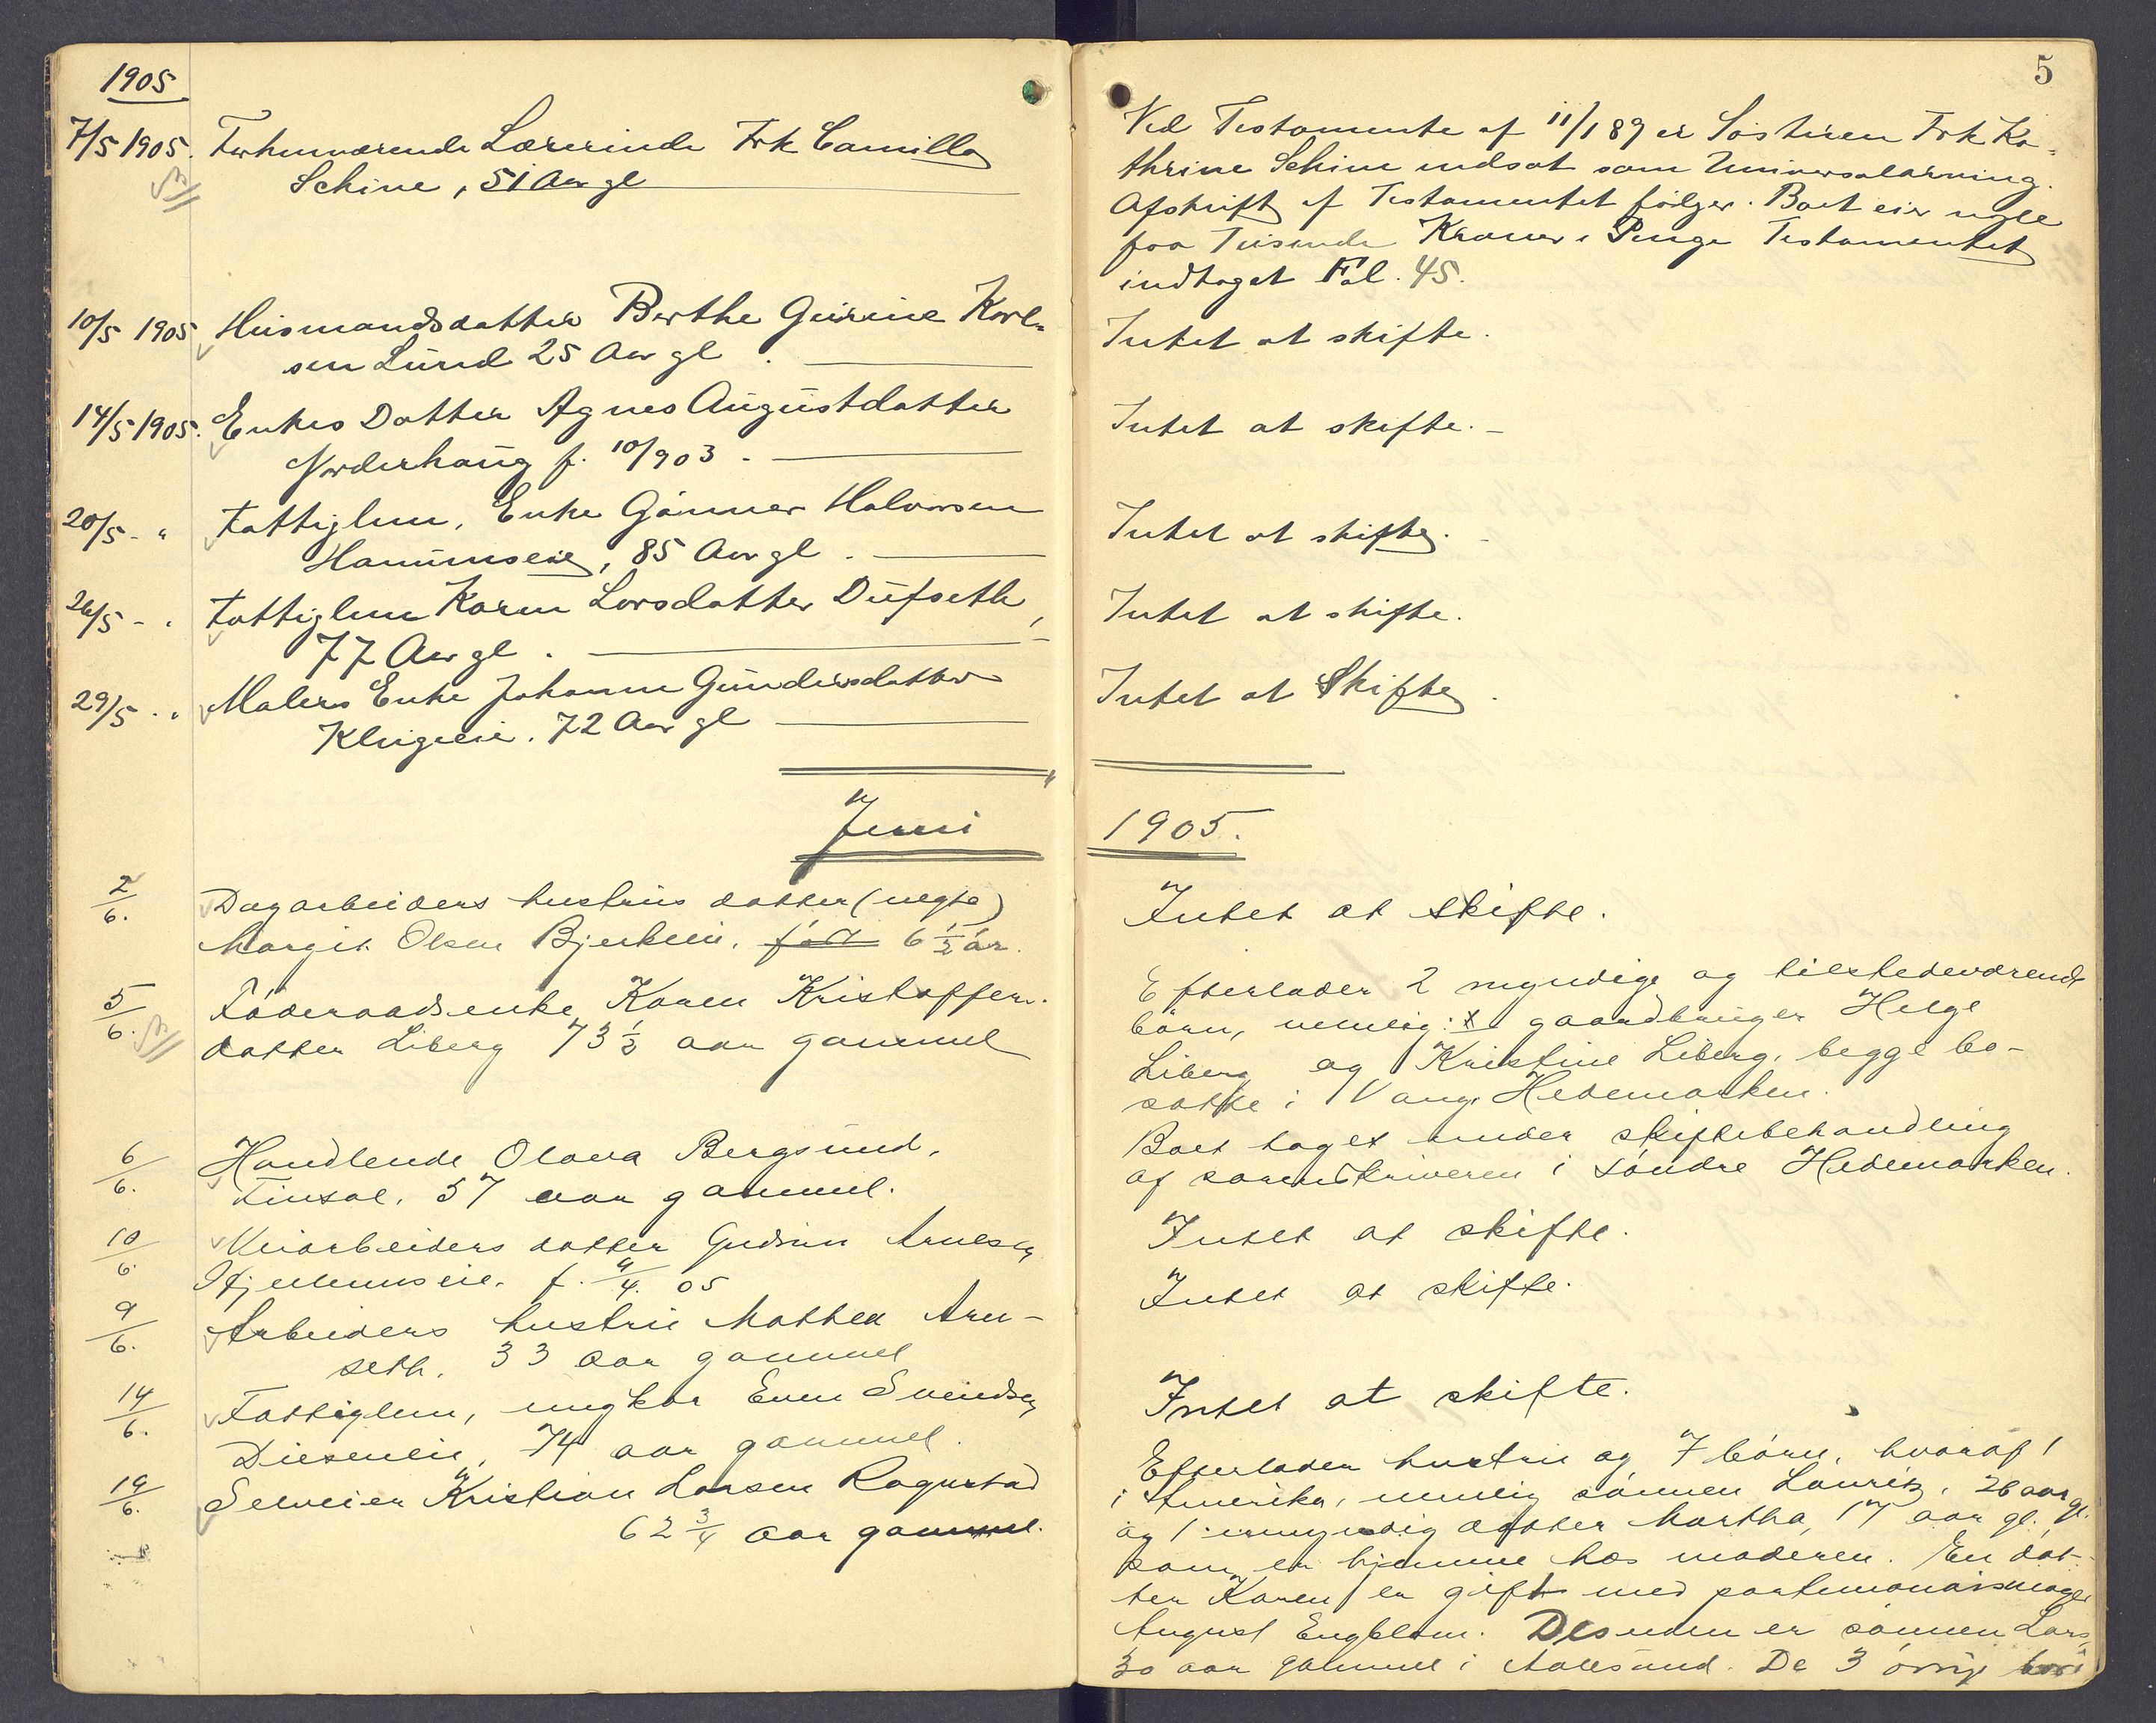 1905
7/5 1905. Forhenværende Lærerinde Frk Camilla
Schive, 51 Aar gl
10/5 1905 Husmandsdatter Berthe Gurine Karl-
sen Lund 25 Aar gl.
14/5 1905. Enkes Datter Agnes Augustdatter
Norderhaug f. 10/903.
20/5 - " Fattiglem, Enke Gunner Halvorsen
Hanumseie, 85 Aar gl.
26/5 - " Fattiglem Karen Larsdatter Dufseth,
77 Aar gl.
29/5 - " Malers Enke Johanne Gundersdatter
Klingeie. 72 Aar gl
Juni
2/6. Dagarbeiders hustrus datter (uegte)
Margit Olsen Bjerkeie. født 6 1/2 år.
5/6. Föderaadsenke Karen Kristoffers-
datter Liberg 73 1/2 aar gammel
6/6. Handlende Olava Bergsund,
Finsal. 57 aar gammel.
10/6. Veiarbeiders datter Gudrun Arnesen
Hjellumseie. f. 9/4. 05
9/6. Arbeiders hustru Mathea Aru-
seth. 33 aar gammel
14/6. Fattiglem, ungkar Even Svendsen
Dieseneie, 74 aar gammel.
19/6. Selveier Kristian Larsen Ragnstad
62 3/4 aar gammel.
5
Ved Testamente af 11/1 89 er Søsteren Frk Ka-
thrine Schive indsat som Universalarving.
Afskrift af Testamentet følger. Boet eier nogle
faa Tusinde Kroner i Penge Testamentet
indtaget Fol. 45.
Intet at skifte.
Intet at skifte. -
Intet at skifte.
Intet at skifte.
Intet at Skifte.
1905.
Intet at skifte.
Efterlader 2 myndige og tilstedeværende
börn, nemlig: gaardbruger Helge
Liberg og Kristine Liberg, begge bo-
satte i Vang. Hedemarken.
Boet taget under skiftebehandling
af sorenskriveren i söndre Hedemarken.
Intet at skifte.
Intet at skifte.
Intet at skifte.
Efterlader hustru og 7 börn, hvoraf 1
i Amerika, nemlig sönnen Lauritz, 26 aar gl.
og 1 umyndig datter Martha, 17 aar gl.,
som er hjemme hos moderen. En dat-
ter Karen er gift med portemonaismager
August Engblom. Desuden er sönnen Lars,
30 aar gammel i Aalesund. De 3 övrige